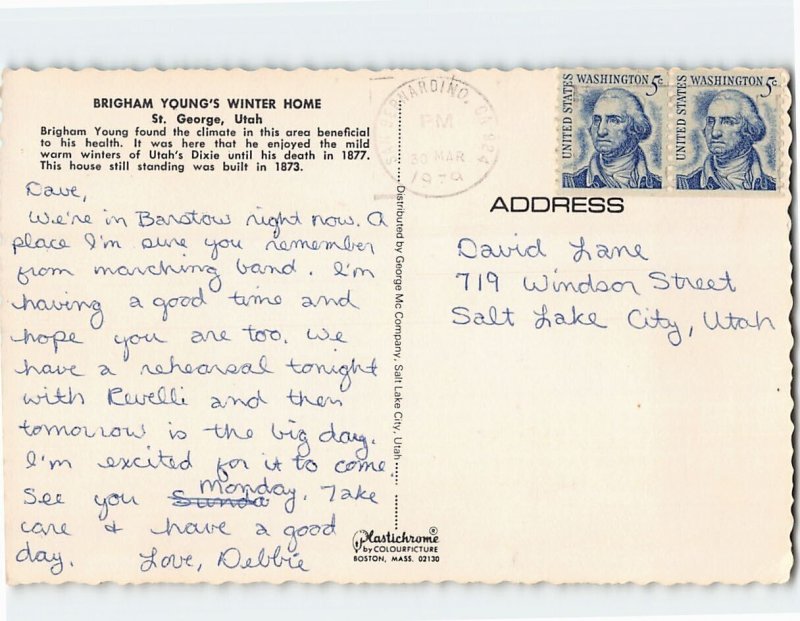 BRIGHAM YOUNG'S WINTER HOME
St. George, Utah
Brigham Young found the climate in this area beneficial
to his health. It was here that he enjoyed the mild
warm winters of Utah's Dixie until his death in 1877.
This house still standing was built in 1873.
Dave,
We're in Barstow right now. A
place I'm sure you remember
from marching band. I'm
having a good time and
hope you are too. We
have a rehearsal tonight
with Revelli and then
tomorrow is the big day.
I'm excited for it to come.
See you Sunda Monday. Take
care & have a good
day. Love, Debbie
Distributed by George Mc Company, Salt Lake City, Utah
Plastichrome®
by COLOURPICTURE
BOSTON, MASS. 02130
SAN BERNARDINO, CA 924
PM
30 MAR
1979
UNITED STATES WASHINGTON 5c
UNITED STATES WASHINGTON 5c
ADDRESS
David Lane
719 Windsor Street
Salt Lake City, Utah